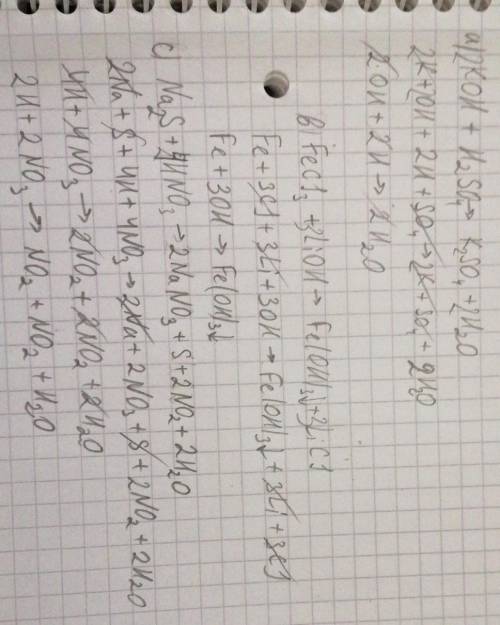 a) 2KOH + H2SO4 → K2SO4 + 2H2O
2K + 2OH + 2H + SO4 → 2K + SO4 + 2H2O
2OH + 2H → 2H2O
B) FeCl3 + 3LiOH → Fe(OH)3↓ + 3LiCl
Fe + 3Cl + 3Li + 3OH → Fe(OH)3↓ + 3Li + 3Cl
Fe + 3OH → Fe(OH)3↓
c) Na2S + 4HNO3 → 2NaNO3 + S + 2NO2 + 2H2O
2Na + S + 4H + 4NO3 → 2Na + 2NO3 + S + 2NO2 + 2H2O
4H + 4NO3 → 2NO2 + 2NO2 + 2H2O
2H + 2NO3 → NO2 + NO2 + H2O